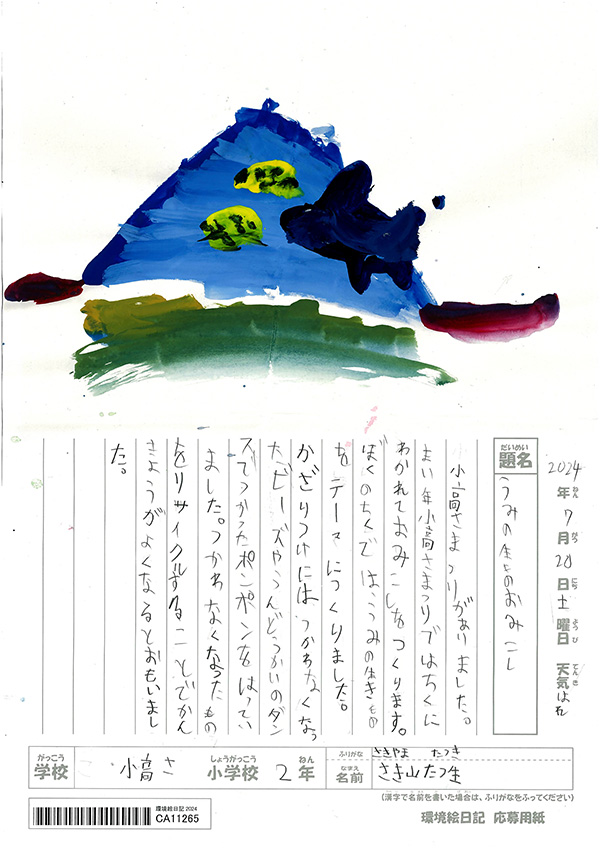 2024年ねん7月がつ20日にち土曜日ようび 天気てんきはれ
題名だいめい うみの生きものおみこし
小高さままつりがありました。
まい年小高さまつりではちくに
わかれておみこしをつくります。
ぼくのちくでは、うみの生きもの
をテーマにつくりました。
かざりつけには、つかわなくなっ
たビーズやうんどうかいのダン
スでつかったポンポンをはってい
ました。つかわなくなったもの
をリサイクルすることでかん
きょうがよくなるとおもいまし
た。
がっこう学校 小高 しょうがっこう小学校 2ねん年
ふりがな さきやま たつき
なまえ名前 さき山たつ生
(漢字で名前を書いた場合は、ふりがなをふってください)
環境絵日記2024
CA11265
環境絵日記 応募用紙